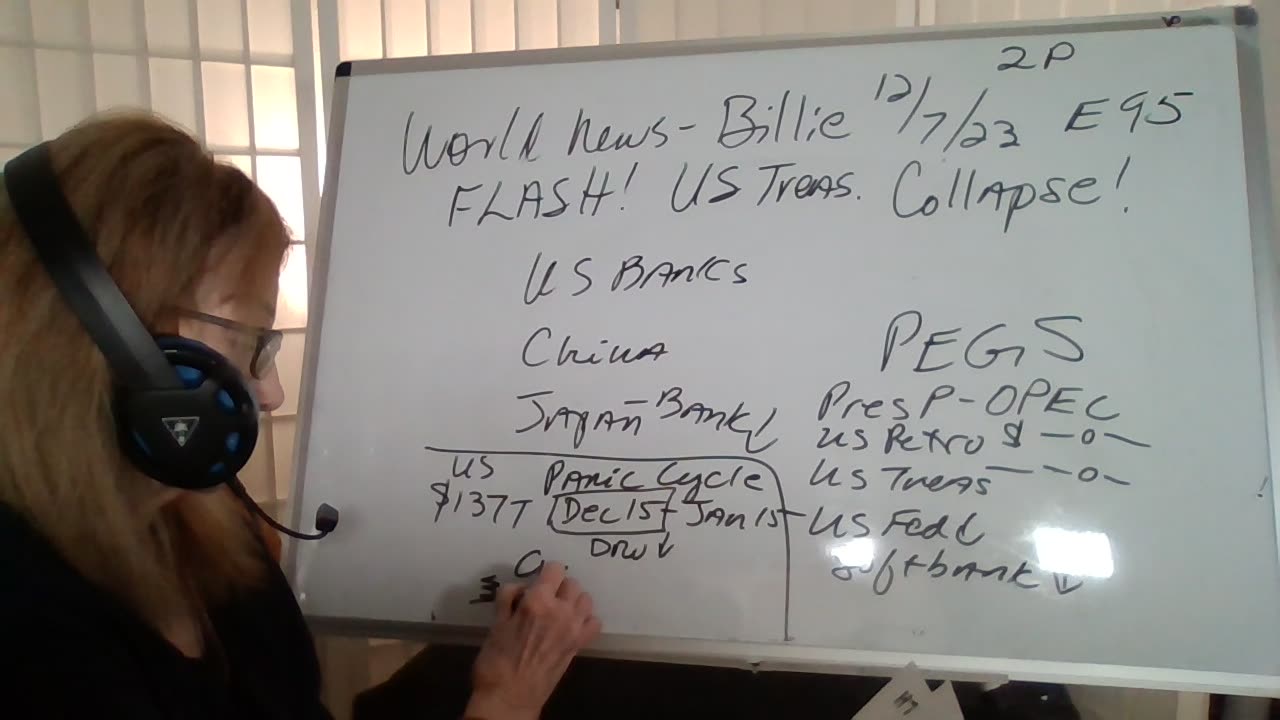 2P
World News - Billie 12/7/23 E95
FLASH! US Treas. Collapse!
US BANKS
China
JAPAN - BANK ↓
US
$137T
PANIC Cycle
Dec 15 - JAN 15
DOW ↓
PEGS
Pres P - OPEC
US Petro $ — 0 —
US Treas — — 0 —
US Fed ↓
Softbank ↓